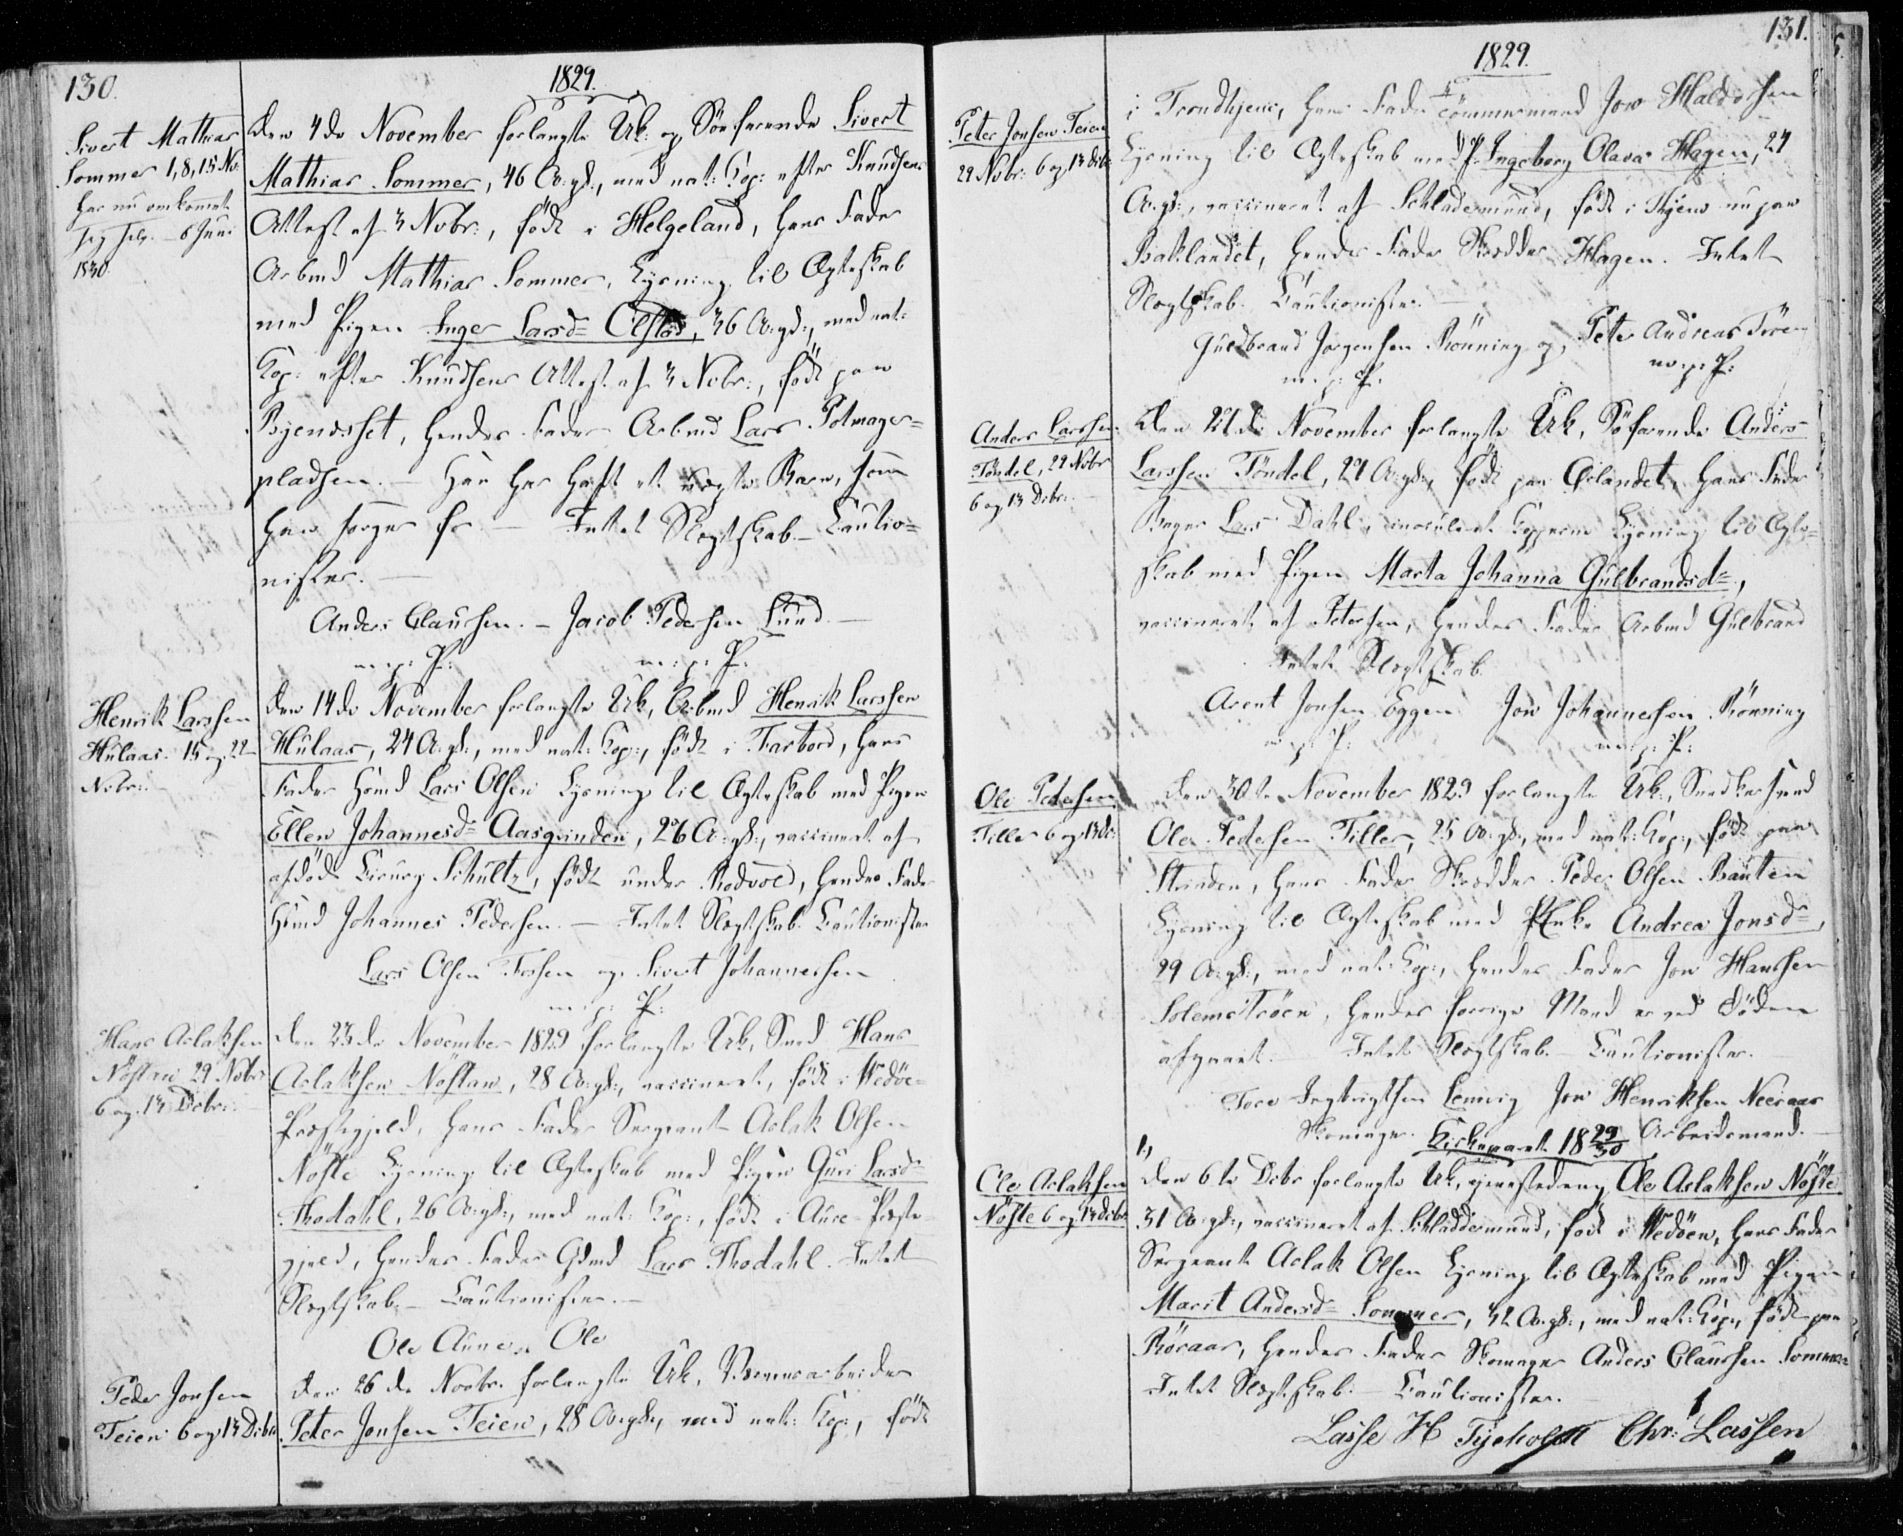 130.
1829.
Sivert Mathias
Sommer 1, 8, 15 Nbr.
har nu omkommet
sig selv 6 Juni
1830.
Den 4de November forlangte Uk: og Søefarende Sivert
Mathias Sommer, 46 Aar gl:, med nat: Kop: efter Knudsens
Attest af 3 Nvbr:, född i Helgeland, hans Fader
Arbmd Mathias Sommer, Lysning til Ægteskab
med Pigen Inger Larsd= Ølstad, 36 Aar gl:, med nat:
Kop: efter Knudsens Attest af 3 Nvbr:, född paa
Byenesset, hendes Fader Arbmd Lars Potmager=
pladsen. – Hun har haft et uægte Barn, som
han sørger for – Intet Slegtskab – Cautio=
nister. –
Anders Claussen. – Jacob Pedersen Lund –
m: p: P: m: p: P:
Henrik Larssen
Hulaas 15 og 22
Nvbr:
Den 14de November forlangte Uk, Arbmd Henrik Larssen
Hulaas, 24 A: gl:, med nat: Kop:, född i Farbord, hans
Fader Hsmd Lars Olsen Lysning til Ægteskab med Pigen
Ellen Johannesd= Aasgrinden, 26 A: gl:, vaccineret af
afdöde Cirurg Schultz, född under Rodvold, hendes Fader
Hsmd Johannes Pedersen. – Intet Slegtskab. Cautionister
Lars Olsen Fossen og Sivert Johannessen
m: p: P:
Hans Aslaksen
Nöstan 29 Nvbr
6 og 13 Decbr:
Den 23de November 1829 forlangte Uk, Smed Hans
Aslaksen Nöstan, 28 A: gl:, vaccineret, född i Wedöe=
Præstegjeld, hans Fader Sergeant Aslak Olsen
Nöste Lysning til Ægteskab med Pigen Guri Larsd=
Thodahl, 26 A: gl:, med nat: Kop:, född i Aure-Præste=
gjeld, hendes Fader Gdmd Lars Thodahl. Intet
Slegtskab. – Cautionister. –
Ole Aune Ole
Peder Jonsen
Teien 6 og 13 Decbr
Den 26de Novbr. forlangte Uk, arbeider
Peter Jonsen Teien, 28 A: gl:, med nat: Kop:, född
131.
1829.
Peter Jonsen Teien
29 Nvbr: 6 og 13 Dcbr:
i Trondhjem, hans Fader Tömmermand Jon Haldorsen
Lysning til Ægteskab med P. Ingeborg Olava Hagen, 24
A: gl:, vaccineret af Schlademund, född i Thjem nu paa
Baklandet, hendes Fader Skrædder Hagen. Intet
Slegtskab. Cautionister. –
Guldbrand Jørgensen Rönning og Peter Andreas
m: p: P: m: p: P:
Anders Larssen
Töndel, 29 Nvbr
6 og 13 Decbr.
Den 27de November forlangte Uk, Söfarende Anders
Larssen Töndel, 27 A: gl:, född paa Ørlandet, hans Fader
Bager Lars Dahl, inoculeret Kopperne Lysning til Ægte=
skab med Pigen Marta Johanna Gulbrandsd=,
vaccineret af Petersen, hendes Fader Arbmd Gulbrand
Intet Slegtskab.
Arent Jonsen Eggen Jon Johannessen Rönning
m: p: P: m: p: P:
Ole Pedersen
Tiller 6 og 13 Dc:
Den 30te November 1829 forlangte Uk:, Snedkersvend
Ole Pedersen Tiller, 25 A: gl:, med nat: Kop:, född paa
Strinden, hans Fader Skrædder Peder Olsen Bauten
Lysning til Ægteskab med Enke Andrea Jonsd=,
29 A: gl:, med nat: Kop:, hendes Fader Jon Hanssen
Solemströen, hendes forrige Mand er ved Döden
afgaaet. – Intet Slegtskab. – Cautionister.
Tore Ingbrigtsen Lemvig Jon Henriksen Neeraas
Skomager. Arbeidsmand. –
Kirkeaaret 18 29/30
1,
Ole Aslaksen
Nöste 6 og 13 Decbr
Den 6te Decbr forlangte Uk, Ole Aslaksen Nöste
31 A: gl:, vaccineret af Schladdermund, född i Wedöen, hans Fader
Sergeant Aslak Olsen Lysning til Ægteskab med Pigen
Marit Andersd= Sommer, 32 A: gl:, med nat: Kop:, född paa
Röraas, hendes Fader Skomager Anders Claussen Sommer
Intet Slegtskab. – Cautionister.
Lasse H Tyeholdt Chr: Lassen